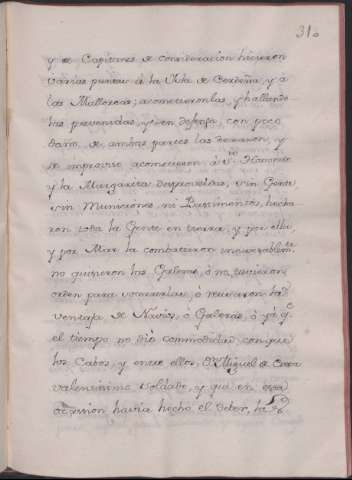 31.
y de Capitanes de consideracion hicieron
varias puntas à la Ysla de Cerdeña, y à
las Mallorcas; acometieronlas, y hallando
las prevenidas, y en defensa con poco
daño de ambas partes las dexaron, y
de improviso acometieron à Sto. Honorato
y la Margarita desproveidas, sin Gente,
sin Municiones, ni Bastimentos, hecha
ron toda la Gente en tierra, y por ella,
y por Mar la combatieron
no quisieron las Galeras, ò no tuvieron
orden para socorrerlas, ò rezelaron la
ventaja de Navios, ò Galeras, ò yà q.e
el tiempo no diò commodidad con que
los Cabos, y entre ellos, Dn. Miguel de
valentissimo soldado, y que en esta
ocasion havia hecho el deber,